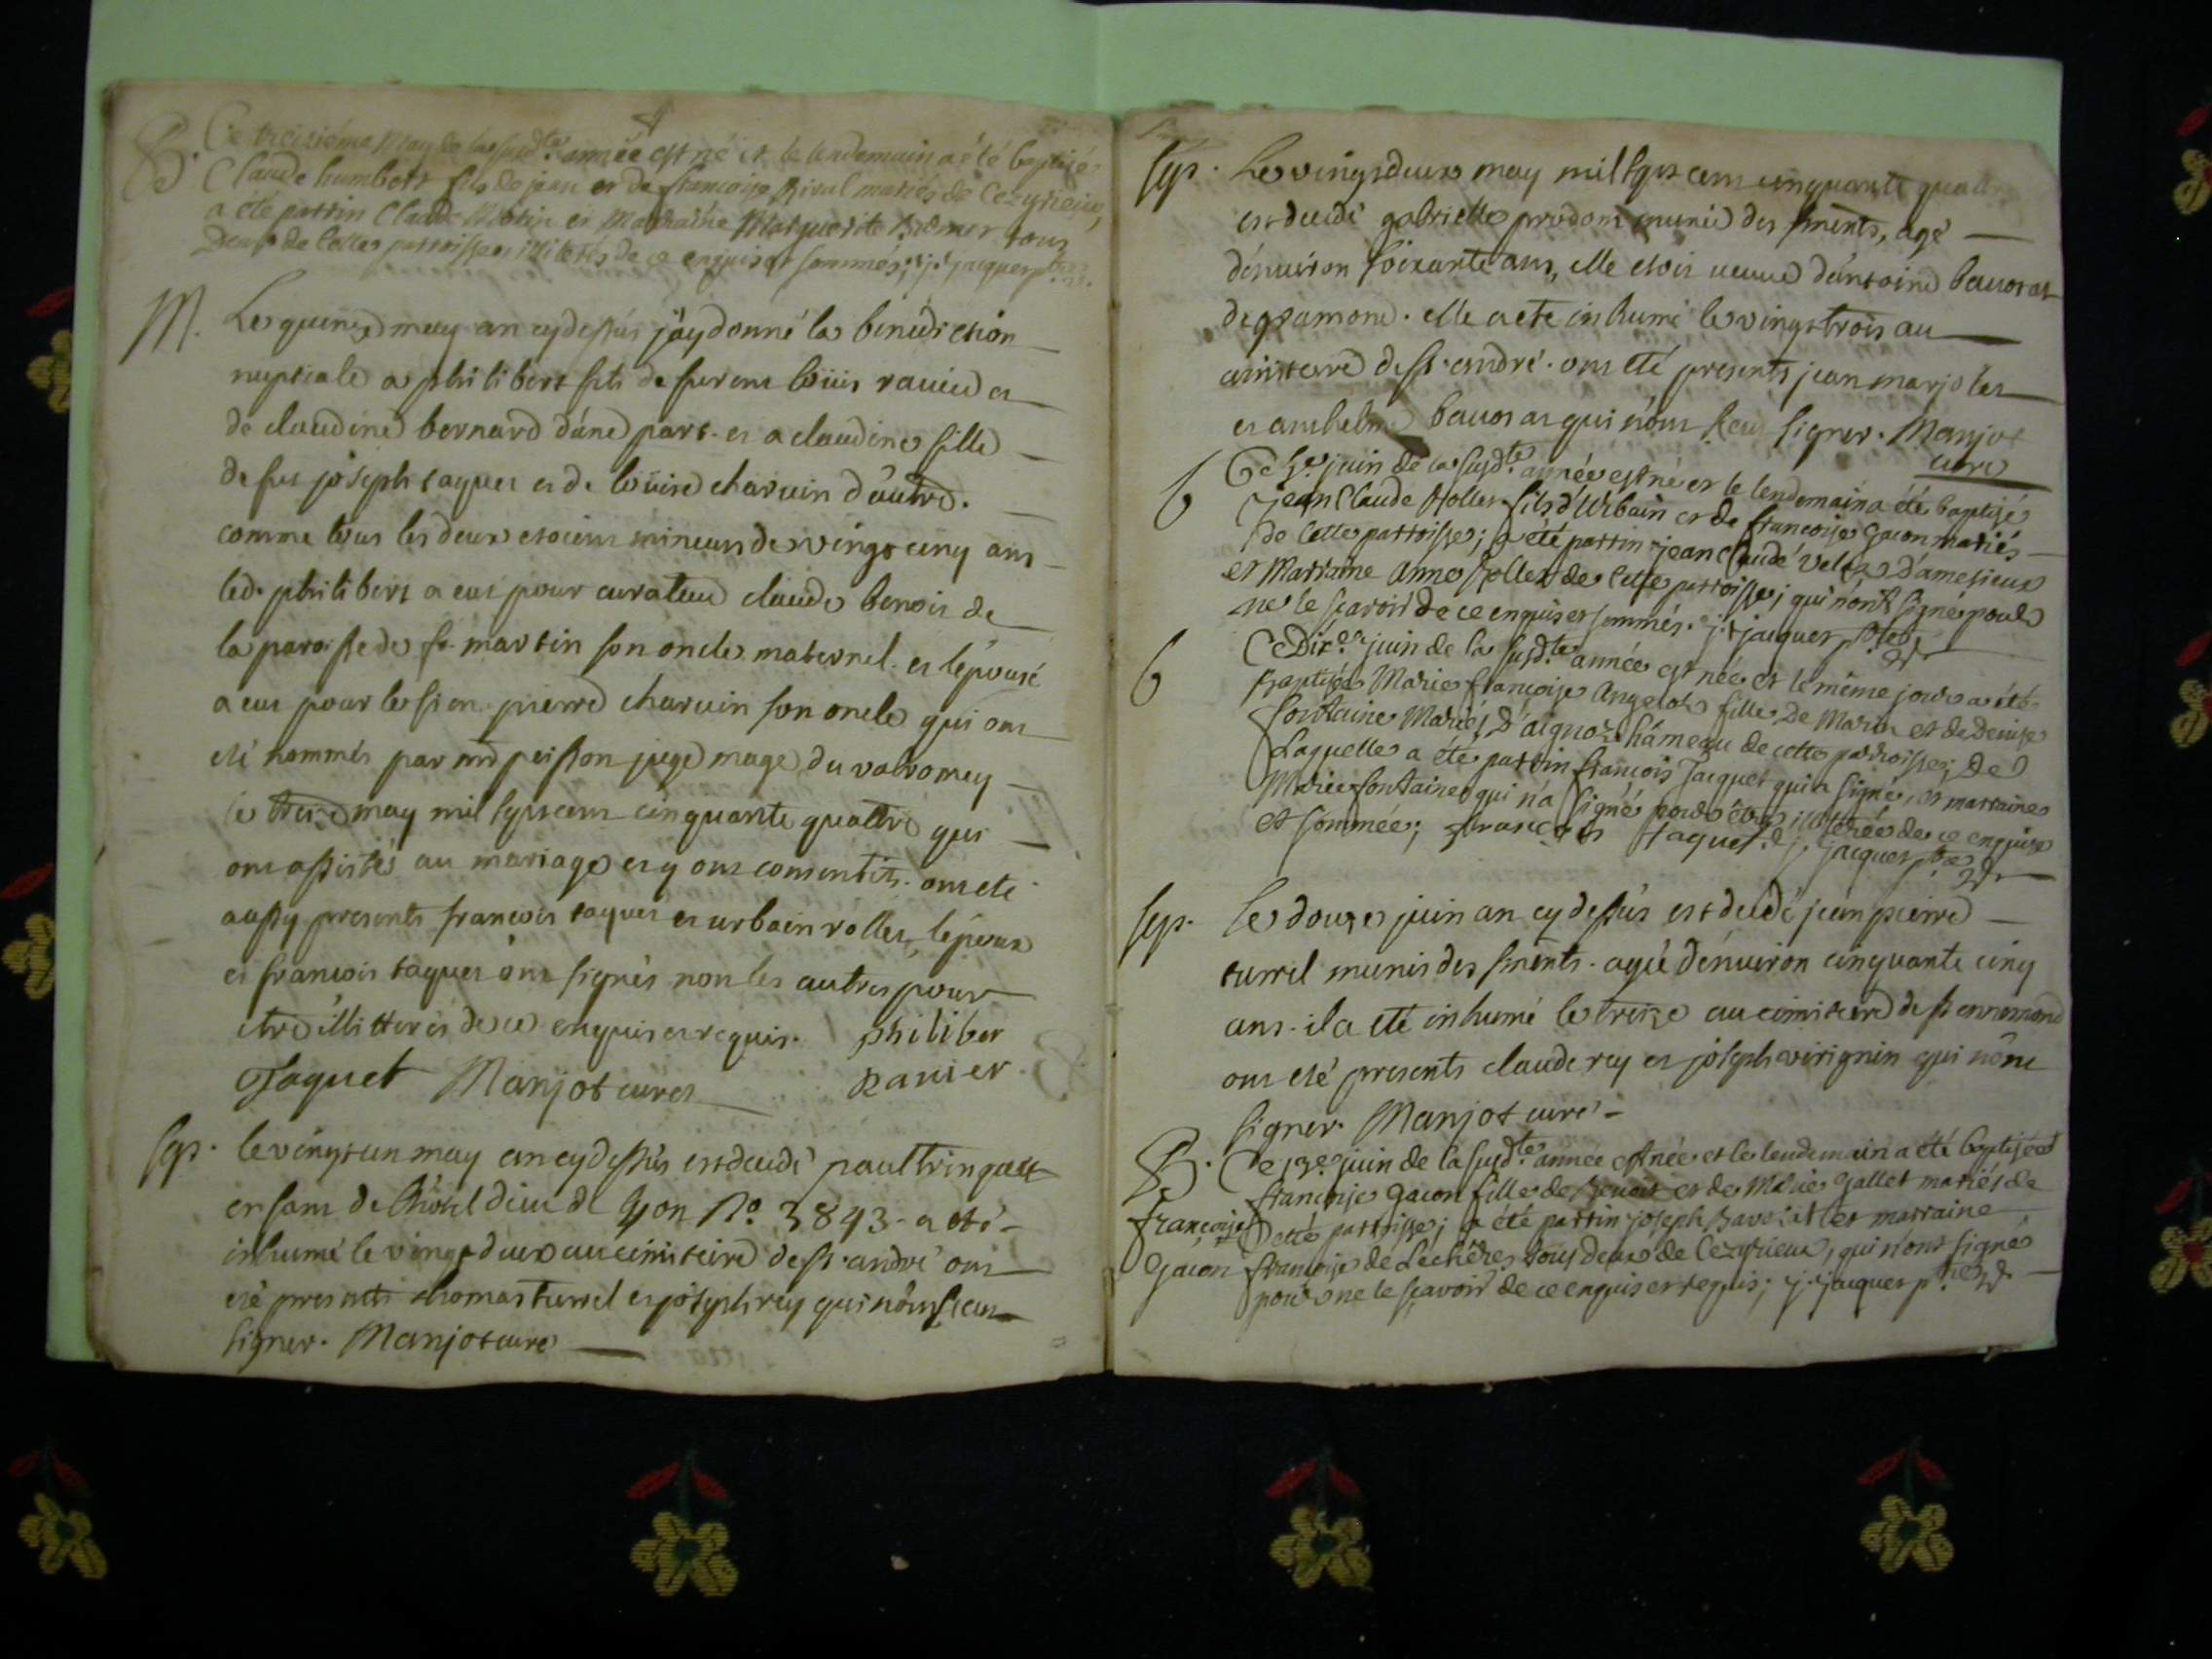 B. Ce treizième May de la susd.te année est né et le lendemain a été baptisé
Claude humbert fils de jean et de françoise Rival mariés de Cezyrieux,
a été parrin Claude et Marraine Marguerite tous
Deux de cette parroisse illiterés de ce enquis et sommés; j. jacquet p.tre
M. Le quinze may an cydessus jáy donné la bénédiction
nuptiale a philibert fils de furent loüis ravier et
de claudine bernard dúne part. et a claudine fille
de feu joseph taquet et de loüise charvin d'autre.
comme tous les deux etoient mineurs de vingt cinq ans
led. philibert a eut pour curateur claude benoit de
la paroisse de st. martin son oncle maternel. et lépouse
a eut pour le sien pierre charvin son oncle qui ont
eté nommés par md peisson juge mage du valromey
le treize may mil sept cent cinquante quattre qui
ont assistés au mariage et y ont consentits. ont eté
aussy presents francois taquet et urbain rollet, lépoux
et francois taquet ont signés non les autres pour
etre illitterés de ce enquis et requis. philiber
Jaquet Manjot curé ravier
sep. le vingt un may an cydessus est decédé paul tringuet
enfant de lhôtel dieu de lyon No. 3893. a eté
inhumé le vingt deux au cimitiere de st. andré ont
eté presents thomas turrel et joseph rey qui nônt sceu
signer. Manjot curé
sep. Le vingt deux may mil sept cent cinquante quatt
est decédé gabrielle prodom munie des sments, agé
dénviron soixante ans, elle etoit veuve dántoine bavorat
de gramond. elle a eté inhumé le vingt trois au
cimiterre de st. andré. ont eté presents jean marjolet
et anthelme bavorat qui nónt sceu signer. Manjot
curé
b Ce 5.e juin de la susd.te année est né et le lendemain a été baptisé
Jean Claude Rollet fils d'Urbain et de françoise Gacon mariés
de cette parroisse; a été parrin jean Claude Velet d'amesieux
et Marraine Anne Rollet de cette parroisse; qui n'ont signé pour
ne le scavoir de ce enquis et sommés. j. jacquet p.tre
b Ce Dix.e juin de la susd.te année est née et le même jour a été
Baptisée Marie françoise Angelot fille De Marin et de Denise
fontaine Mariés D'aignoz hâmeau de cette parroisse; De
Laquelle a été parrin françois Jacquet qui a signé, et marraine
Marie fontaine qui n'a signé pour être illiterée de ce enquise
et sommée; francois taquet. j. jacquet p.tre
sep. le douze juin an cydessus est decédé jean pierre
turrel munis des sments. agé dénviron cinquante cinq
ans. il a eté inhumé le treize au cimitiere de st
ont eté presents claude rey et joseph virignin qui nônt
signer. Manjot curé
B. Ce 13.e juin de la susd.te année est née et le lendemain a été baptisée
françoise Gacon fille de Benoit et de Marie Gallet mariés de
françoise Cette parroisse; a été parrin joseph et marraine
Gacon françoise de Lechères tous deux de Cezyrieux, qui n'ont signé
pour ne le sçavoir de ce enquis et requis; j. jacquet p.tre